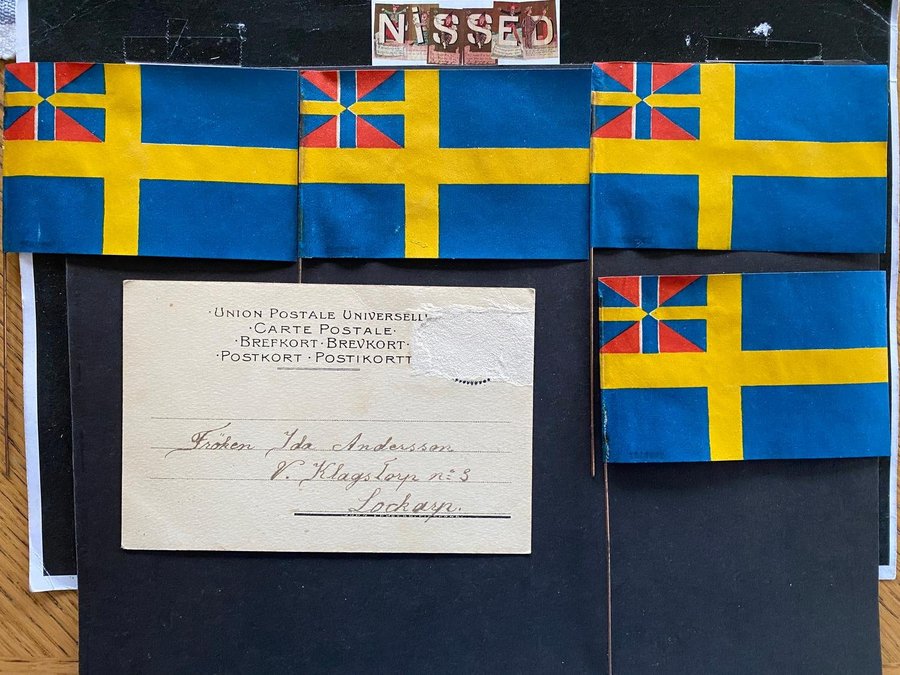 NiSSED
·UNION POSTALE UNIVERSELL
·CARTE POSTALE·
·BREFKORT·BREVKORT·
·POSTKORT·POSTIKORTT
Fröken Ida Andersson
V. Klagstorp no 3
Lockarp.